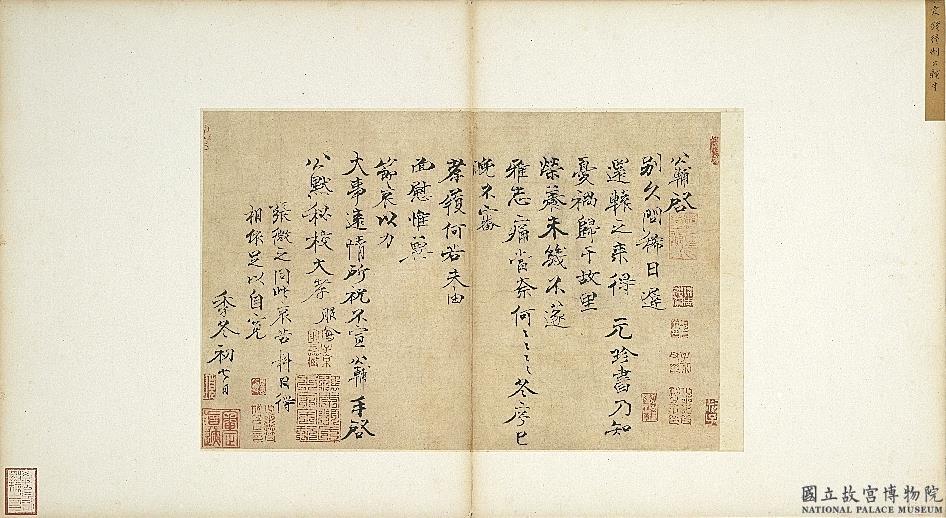 公輔啓
別久聞稀日遲
還轅之來得 元珍書乃知
憂禍歸于故里
榮養未幾不遂
雅志痛當奈何ゝゝゝ冬序已
晚不審
孝履何若未由
面慰惟冀
節哀以力
大事遠情所祝不宣 公輔 手啓
公默秘校大孝 服舍
張微之同此哀苦料日得
相依足以自寬
季冬初七日
國立故宮博物院
NATIONAL PALACE MUSEUM